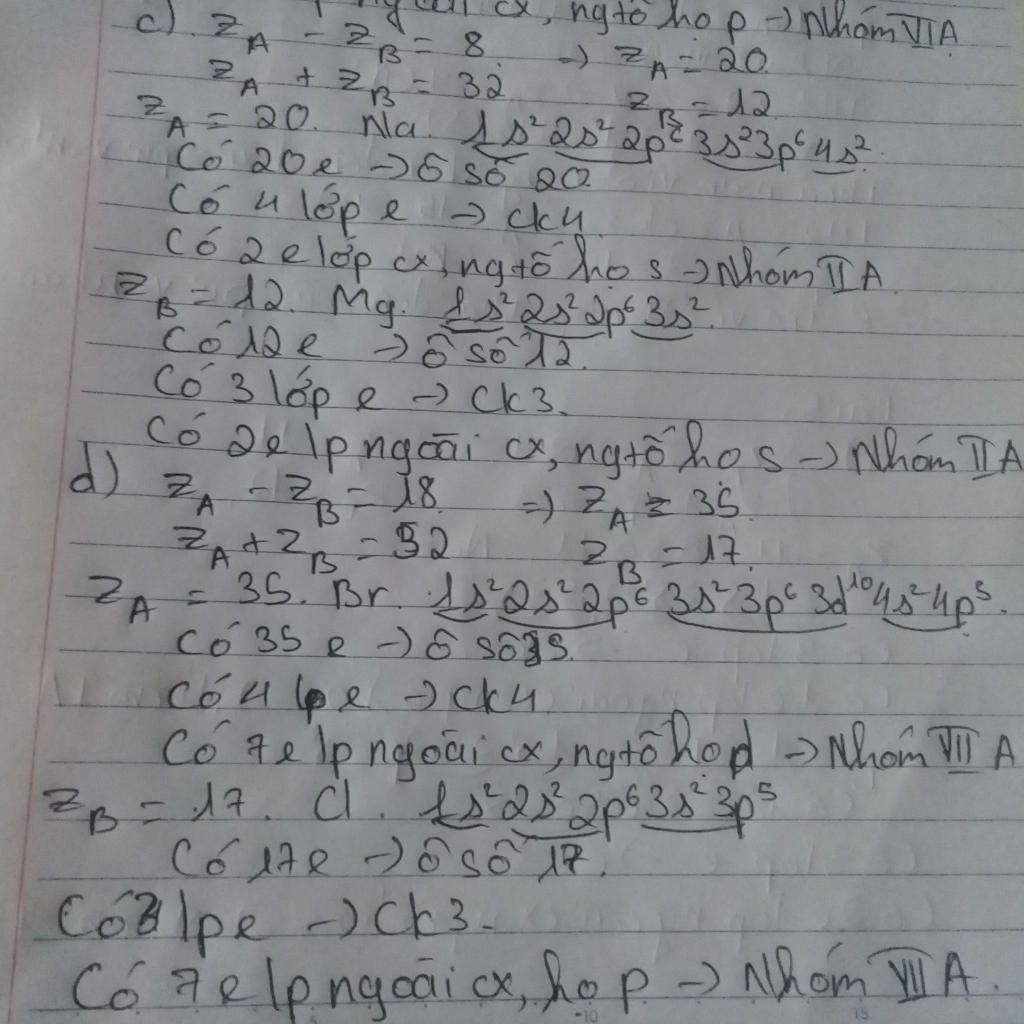 ngoài cx, ngtố họ p → Nhóm VIA
c). Z_A - Z_B = 8 → Z_A = 20.
Z_A + Z_B = 32 Z_B = 12
Z_A = 20. Na. 1s² 2s² 2p⁶ 3s² 3p⁶ 4s².
Có 20e → ô số 20.
Có 4 lớp e → ck4.
Có 2e lớp cx, ngtố họ s → Nhóm IIA.
Z_B = 12. Mg. 1s² 2s² 2p⁶ 3s².
Có 12e → ô số 12.
Có 3 lớp e → Ck3.
Có 2e lp ngoài cx, ngtố họ s → Nhóm IIA
d) Z_A - Z_B = 18. => Z_A = 35.
Z_A + Z_B = 52 Z_B = 17.
Z_A = 35. Br. 1s² 2s² 2p⁶ 3s² 3p⁶ 3d¹⁰ 4s² 4p⁵.
Có 35 e → ô số 35.
Có 4 lp e → Ck4
Có 7e lp ngoài cx, ngtố họ d → Nhóm VII A
Z_B = 17. Cl. 1s² 2s² 2p⁶ 3s² 3p⁵
Có 17e → ô số 17.
Có 3 lp e → Ck3.
Có 7e lp ngoài cx, họ p → Nhóm VII A.